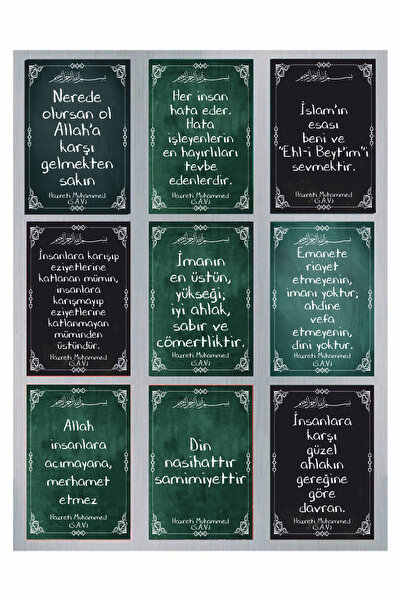 بسم الله الرحمن الرحيم
Nerede
olursan ol
Allah'a
karşı
gelmekten
sakın
Hazreti Muhammed
(S.A.V)
بسم الله الرحمن الرحيم
Her insan
hata eder.
Hata
işleyenlerin
en hayırlıları
tevbe
edenlerdir.
Hazreti Muhammed
(S.A.V)
بسم الله الرحمن الرحيم
İslam'ın
esası
beni ve
"Ehl-i Beyt'im"i
sevmektir.
Hazreti Muhammed
(S.A.V)
بسم الله الرحمن الرحيم
İnsanlara karışıp
eziyetlerine
katlanan mümin,
insanlara
karışmayıp
eziyetlerine
katlanmayan
müminden
üstündür.
Hazreti Muhammed
(S.A.V)
بسم الله الرحمن الرحيم
İmanın
en üstün,
yükseği;
iyi ahlak,
sabır ve
cömertliktir.
Hazreti Muhammed
(S.A.V)
بسم الله الرحمن الرحيم
Emanete
riayet
etmeyenin,
imanı yoktur;
ahdine
vefa
etmeyenin,
dini yoktur.
Hazreti Muhammed
(S.A.V)
بسم الله الرحمن الرحيم
Allah
insanlara
acımayana,
merhamet
etmez
Hazreti Muhammed
(S.A.V)
بسم الله الرحمن الرحيم
Din
nasihattır
samimiyettir
Hazreti Muhammed
(S.A.V)
بسم الله الرحمن الرحيم
İnsanlara
karşı
güzel
ahlakın
gereğine
göre
davran.
Hazreti Muhammed
(S.A.V)